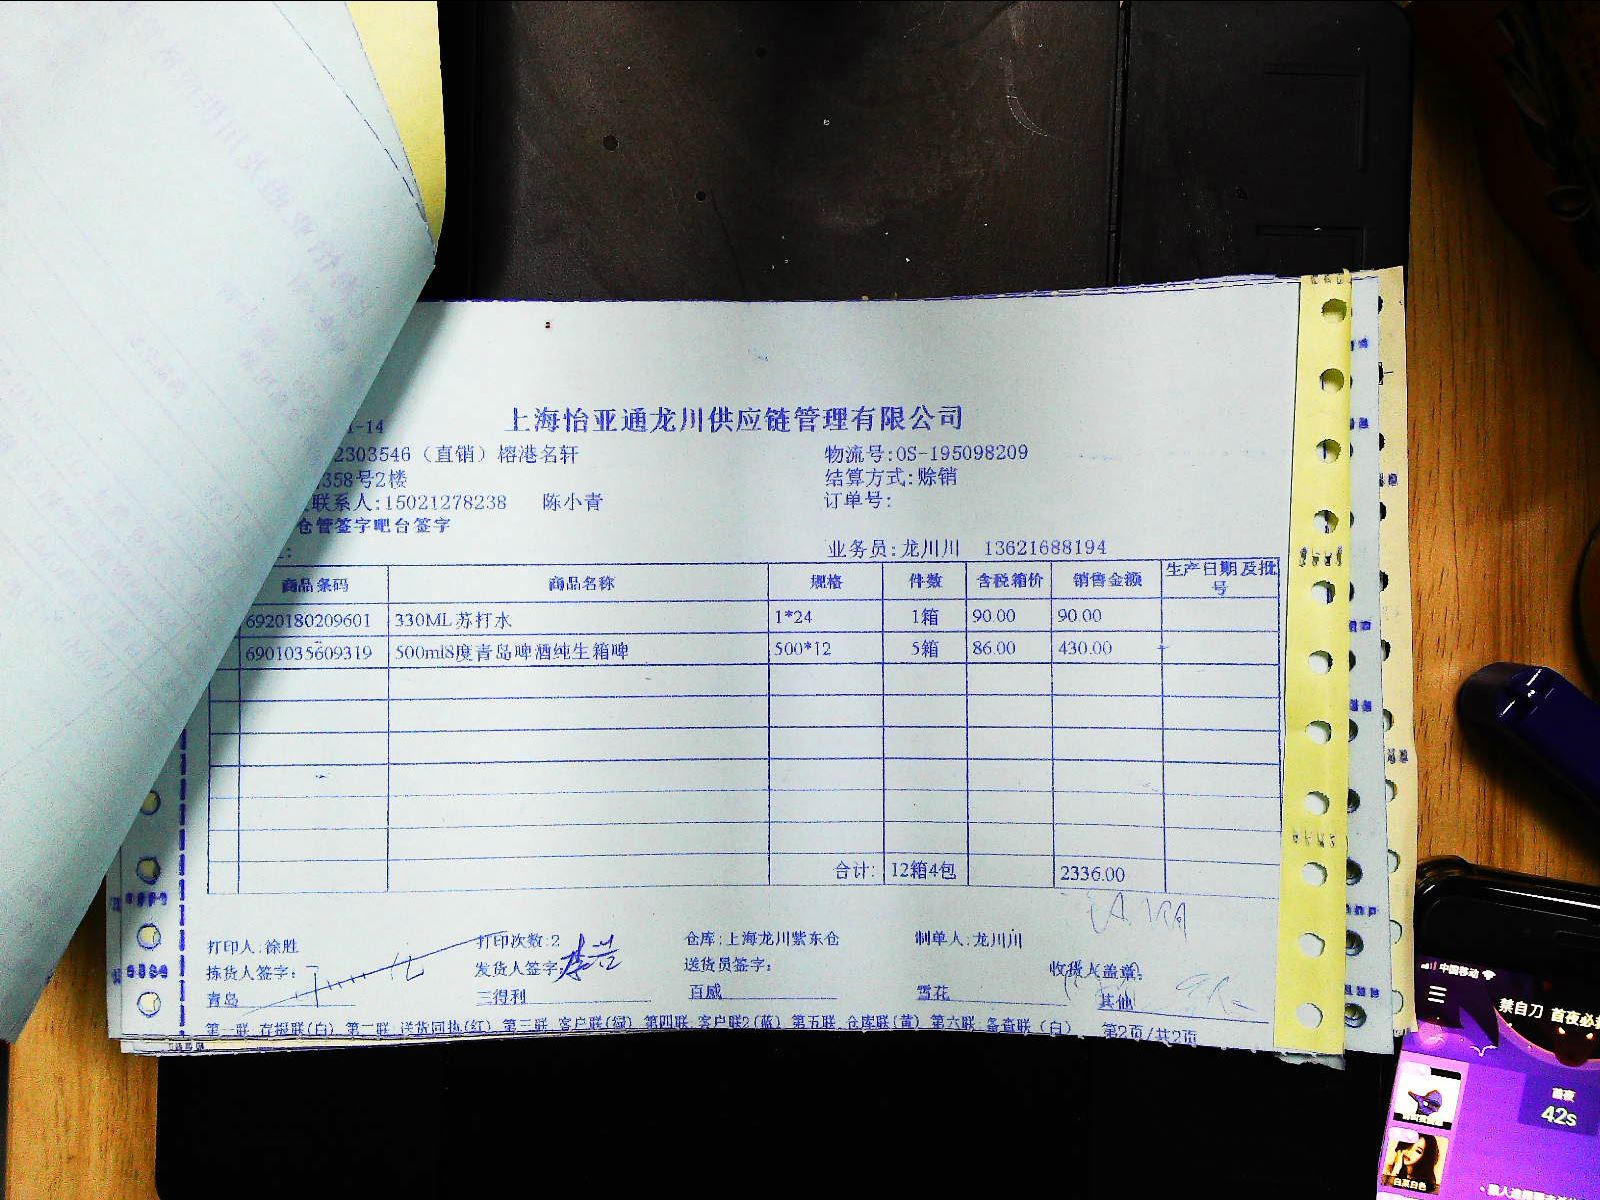 1-14
上海怡亚通龙川供应链管理有限公司
2303546（直销）榕港名轩
物流号:OS-195098209
358号2楼
结算方式:赊销
联系人:15021278238 陈小青
订单号:
仓管签字吧台签字
业务员:龙川川 13621688194
商品条码 商品名称 规格 件数 含税箱价 销售金额 生产日期及批号
6920180209601 330ML苏打水 1*24 1箱 90.00 90.00
6901035609319 500ml8度青岛啤酒纯生箱啤 500*12 5箱 86.00 430.00
合计: 12箱4包 2336.00
打印人:徐胜 打印次数:2 仓库:上海龙川紫东仓 制单人:龙川川
拣货人签字: 发货人签字: 送货员签字: 收货人盖章:
青岛 三得利 百威 雪花 其他
第一联:存根联(白) 第二联:送货回执(红) 第三联:客户联(绿) 第四联:客户联2(蓝) 第五联:仓库联(黄) 第六联:备查联（白） 第2页/共2页
中国移动
禁自刀 首夜必
首夜
42s